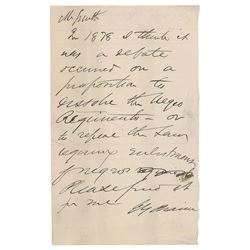 Mr Smith
In 1878 I think it
was a debate
occurred on a
proposition to
dissolve the Negro
Regiments – or
to repeal the law
requiring enlistment
of negros
Please find it
for me